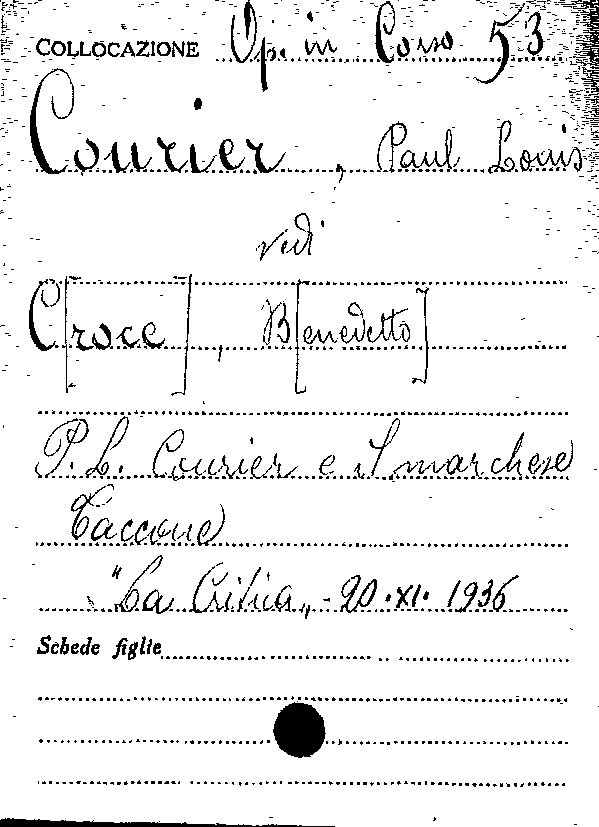 COLLOCAZIONE Op. in Corso 53
Courier, Paul Louis
vedi
C[roce], B[enedetto]
P. L. Courier e il marchese
Taccone
"La Critica„ - 20.XI.1936
Schede figlie